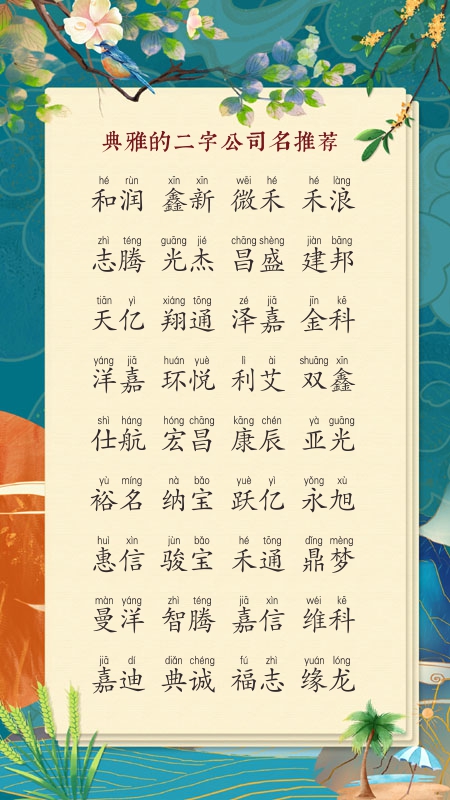 典雅的二字公司名推荐
hé rùn xīn xīn wēi hé hé làng
和润 鑫新 微禾 禾浪
zhì téng guāng jié chāng shèng jiàn bāng
志腾 光杰 昌盛 建邦
tiān yì xiáng tōng zé jiā jīn kē
天亿 翔通 泽嘉 金科
yáng jiā huán yuè lì ài shuāng xīn
洋嘉 环悦 利艾 双鑫
shì háng hóng chāng kāng chén yà guāng
仕航 宏昌 康辰 亚光
yù míng nà bǎo yuè yì yǒng xù
裕名 纳宝 跃亿 永旭
huì xìn jùn bǎo hé tōng dǐng mèng
惠信 骏宝 禾通 鼎梦
màn yáng zhì téng jiā xìn wéi kē
曼洋 智腾 嘉信 维科
jiā dí diǎn chéng fú zhì yuán lóng
嘉迪 典诚 福志 缘龙